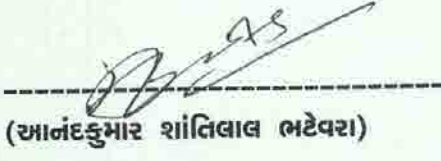 (આનંદકુમાર શાંતિલાલ ભટેવરા)